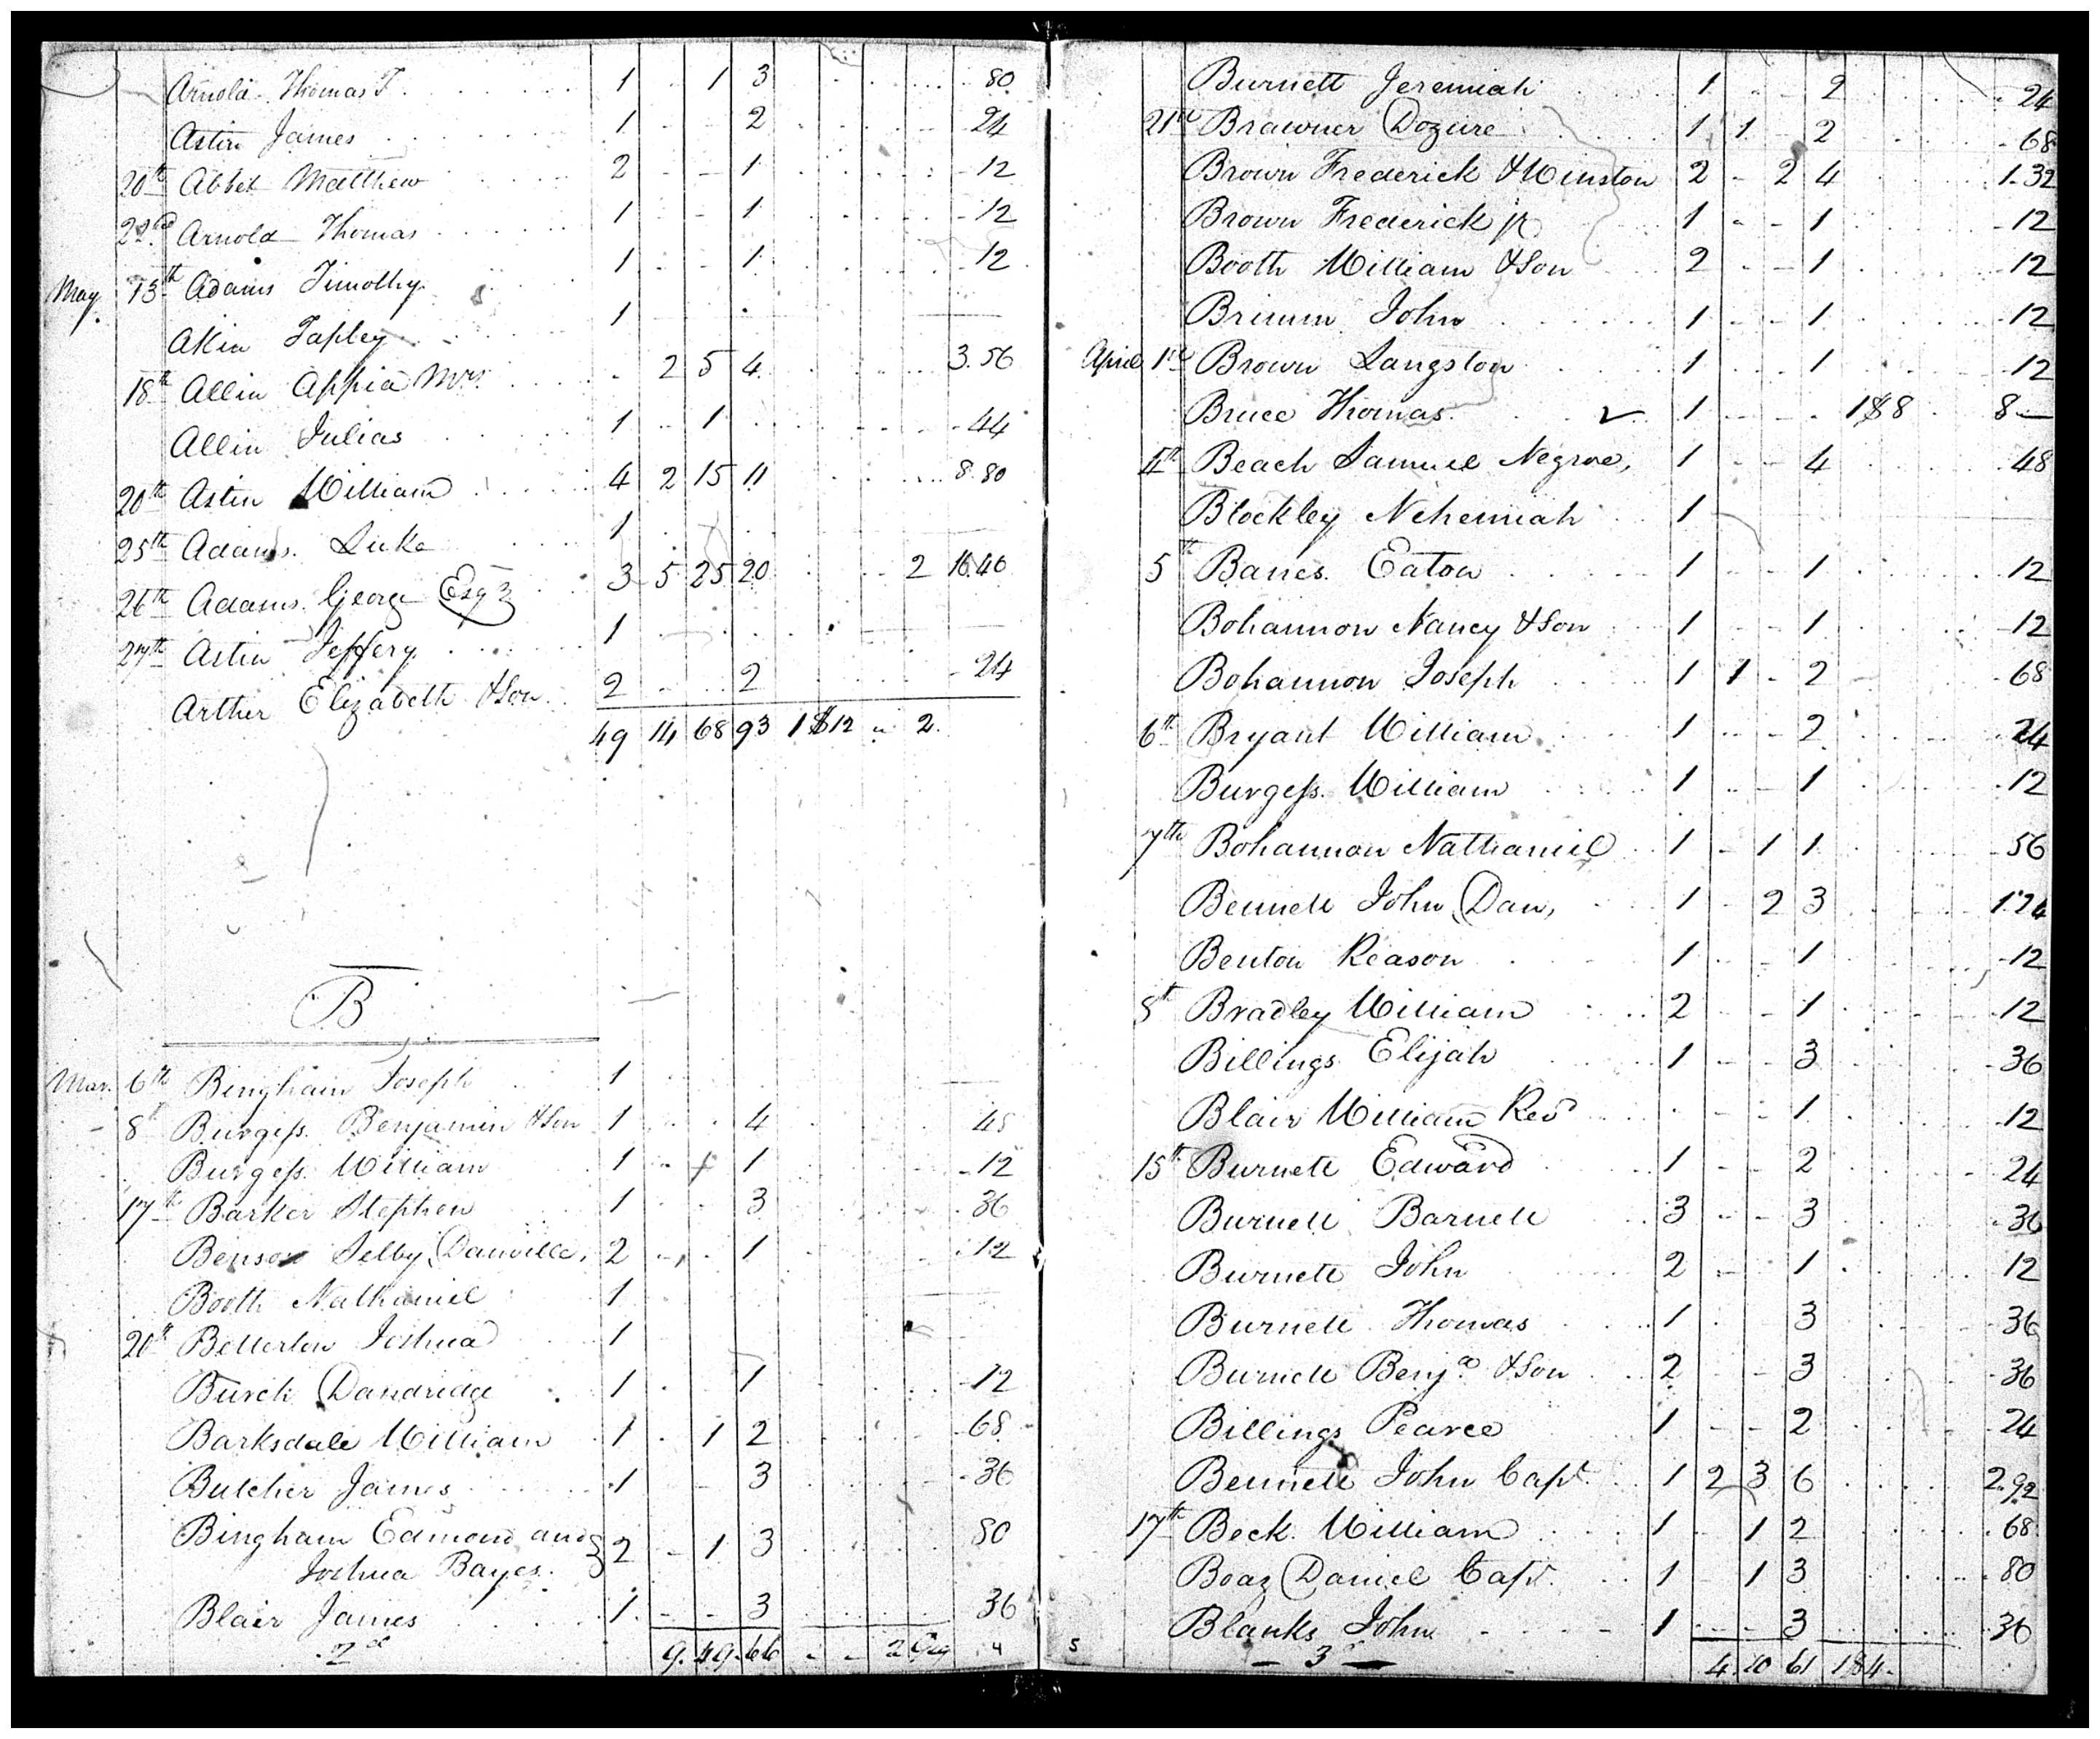 Arnold Thomas T 1 1 3 80
Astin James 1 2 24
20th Abbet Matthew 2 1 12
22nd Arnold Thomas 1 1 12
May 13th Adams Timothy 1 1 12
Akin Tapley 1
18th Allin Appia Mrs. 2 5 4 3.56
Allin Julias 1 1 44
20th Astin William 4 2 15 11 8.80
25th Adams Luke 1
26th Adams George Esqr 3 5 25 20 2 16.40
27th Astin Jeffery 1
Arther Elizabeth & Son 2 2 24
49 14 68 93 1 $12 " 2
B
Mar. 6th Bingham Joseph 1
8th Burgess Benjamin & Son 1 4 48
Burgess William 1 1 12
17th Barker Stephen 1 3 36
Benson Selby, Danville, 2 1 12
Booth Nathaniel 1
20th Betterton Joshua 1
Burch Dandridge 1 1 12
Barksdale William 1 1 2 68
Butcher James 1 3 36
Bingham Edmond and
Joshua Bayes 2 1 3 80
Blair James 1 3 36
9 49 66 2 4
Burnett Jeremiah 1 2 24
21st Brawner Dozure 1 1 2 68
Brown Frederick & Winston 2 2 4 1.32
Brown Frederick jr 1 1 12
Booth William & Son 2 1 12
Brimm John 1 1 12
April 1st Brown Langston 1 1 12
Bruce Thomas 1 1 $8 8—
4th Beach Samuel Negroe, 1 4 48
Blockley Nehemiah 1
5th Banes Eaton 1 1 12
Bohannon Nancy & Son 1 1 12
Bohannon Joseph 1 1 2 68
6th Bryant William 1 2 24
Burgess William 1 1 12
7th Bohannon Nathaniel 1 1 1 56
Bennett John, Dan, 1 2 3 1.24
Benton Reason 1 1 12
8th Bradley William 2 1 12
Billings Elijah 1 3 36
Blair William Revd 1 12
15th Burnett Edward 1 2 24
Burnett Barnett 3 3 36
Burnett John 2 1 12
Burnett Thomas 1 3 36
Burnett Benja & Son 2 3 36
Billings Pearce 1 2 24
Bennett John Capt. 1 2 3 6 2.92
17th Beck William 1 1 2 68
Boaz Daniel Capt. 1 1 3 80
Blanks John 1 3 36
5 3 4 10 61 1 $4